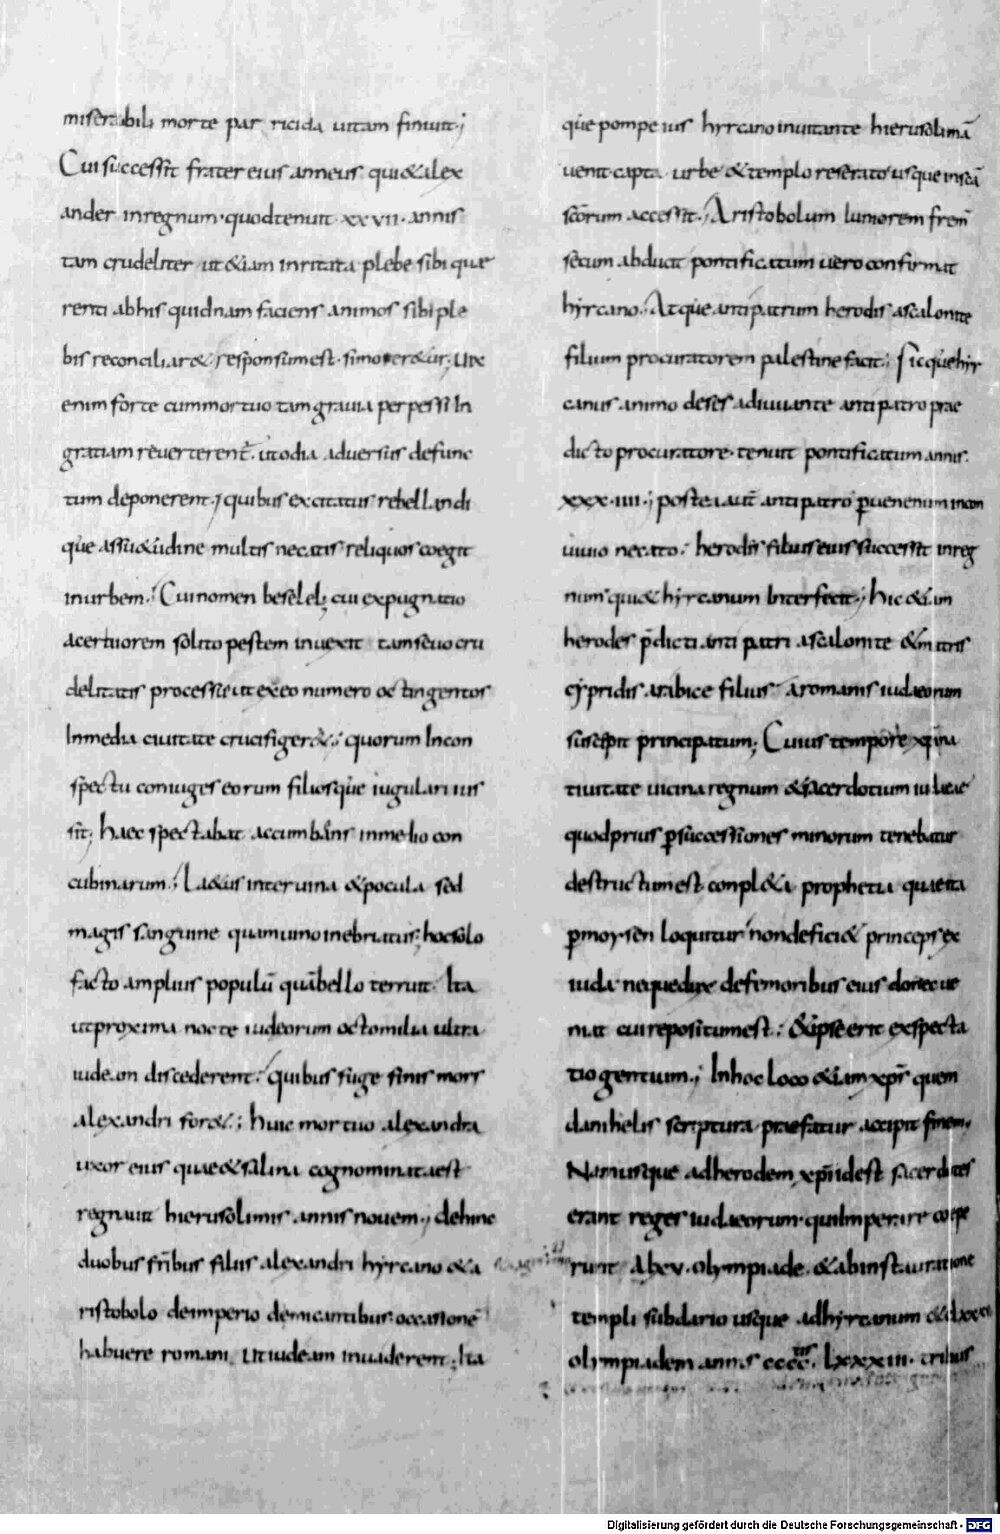 miserabili morte par ricida uitam finiuit·;
Cui successit frater eius anneus qui & alex
ander in regnum· quod tenuit· xxvii· annis
tam crudeliter· ut &iam inritata plebe sibi quae
renti ab his quidnam faciens animos sibi ple
bis reconciliar&· responsum est· si morer&ur; uix
enim forte cum mortuo tam grauia perpessi In
gratiam reuerterent̄· ut odia aduersus defunc
tum deponerent·; quibus excitatus rebellandi
que assu&udine multis necatis reliquos coegit
in urbem·; Cui nomen beselel; cui expugnatio
acertuorem solito pestem inuexit tam seuo cru
delitatis processit ut ex eo numero octingentos
In media ciuitate crucifiger&·; quorum In con
spectu coniuges eorum filiosque iugulari ius
sit; haec spectabat accumbans in medio con
cubinarum·; La&us inter uina & pocula sed
magis sanguine quam uino inebriatus; hoc solo
facto amplius populū quā bello terruit· Ita
ut proxima nocte iudeorum octo milia ultra
iudeam discederent·; quibus fuge finis mors
alexandri for&·; huic mortuo alexandra
uxor eius quae & salina cognominata est
regnauit hierusolimis annis nouem·; dehinc
duobus frībus filiis alexandri hyrcano & a
ristobolo de imperio demicantibus· occasionē
habuere romani, ut iudeam inuaderent·; Ita
que pompeius hyrcano inuitante hierusolimā
uenit· capta urbe & templo reserato usque in scā
scōrum accessit·; Aristobolum
secum abducit pontificatum uero confirmat
hyrcano·; Atque antipatrum herodis ascalonite
filium procuratorem palestine facit·; Sicque hyr
canus animo deses adiuuante antipatro prae
dicto procuratore· tenuit pontificatum annis·
xxx·iiii·; postea aut̄ antipatro p̄ uenenum in con
uiuio necato·; herodis filius eius successit in reg
num· qui & hyrcanum Interfecit·; hic &iam
herodes p̄dicti antipatri ascalonite & matris
cypridis arabice filius· a romanis iudaeorum
suscepit principatum; Cuius tempore xp̄i na
tiuitate uicina regnum & sacerdotium iudaeae
quod prius p̄ successiones minorum tenebatur
destructum est· conpl&a prophetia quae ita
p̄ moysen loquitur· non defici& princeps ex
iuda neque dux de femoribus eius donec ue
niat cui repositum est·; & ipse erit expecta
tio gentium·; In hoc loco &iam xp̄s quem
danihelis scriptura praefatur accipit finem;
Nam usque ad herodem xp̄i id est sacerdotes
erant reges iudaeorum· qui Imperare coepe
runt A lxv· olympiade· & ab instauratione
templi sub dario usque ad hyrcanum &
olympiadem annis cccc· lxxxiii· tribus